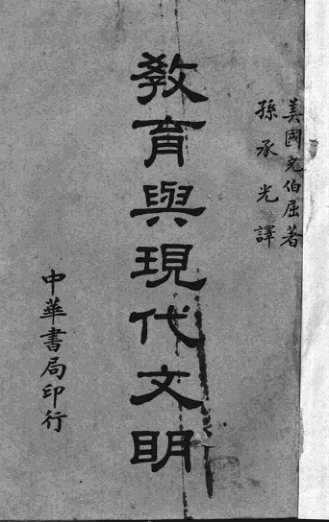 美國克伯屈著
孫承光譯
教育與現代文明
中華書局印行